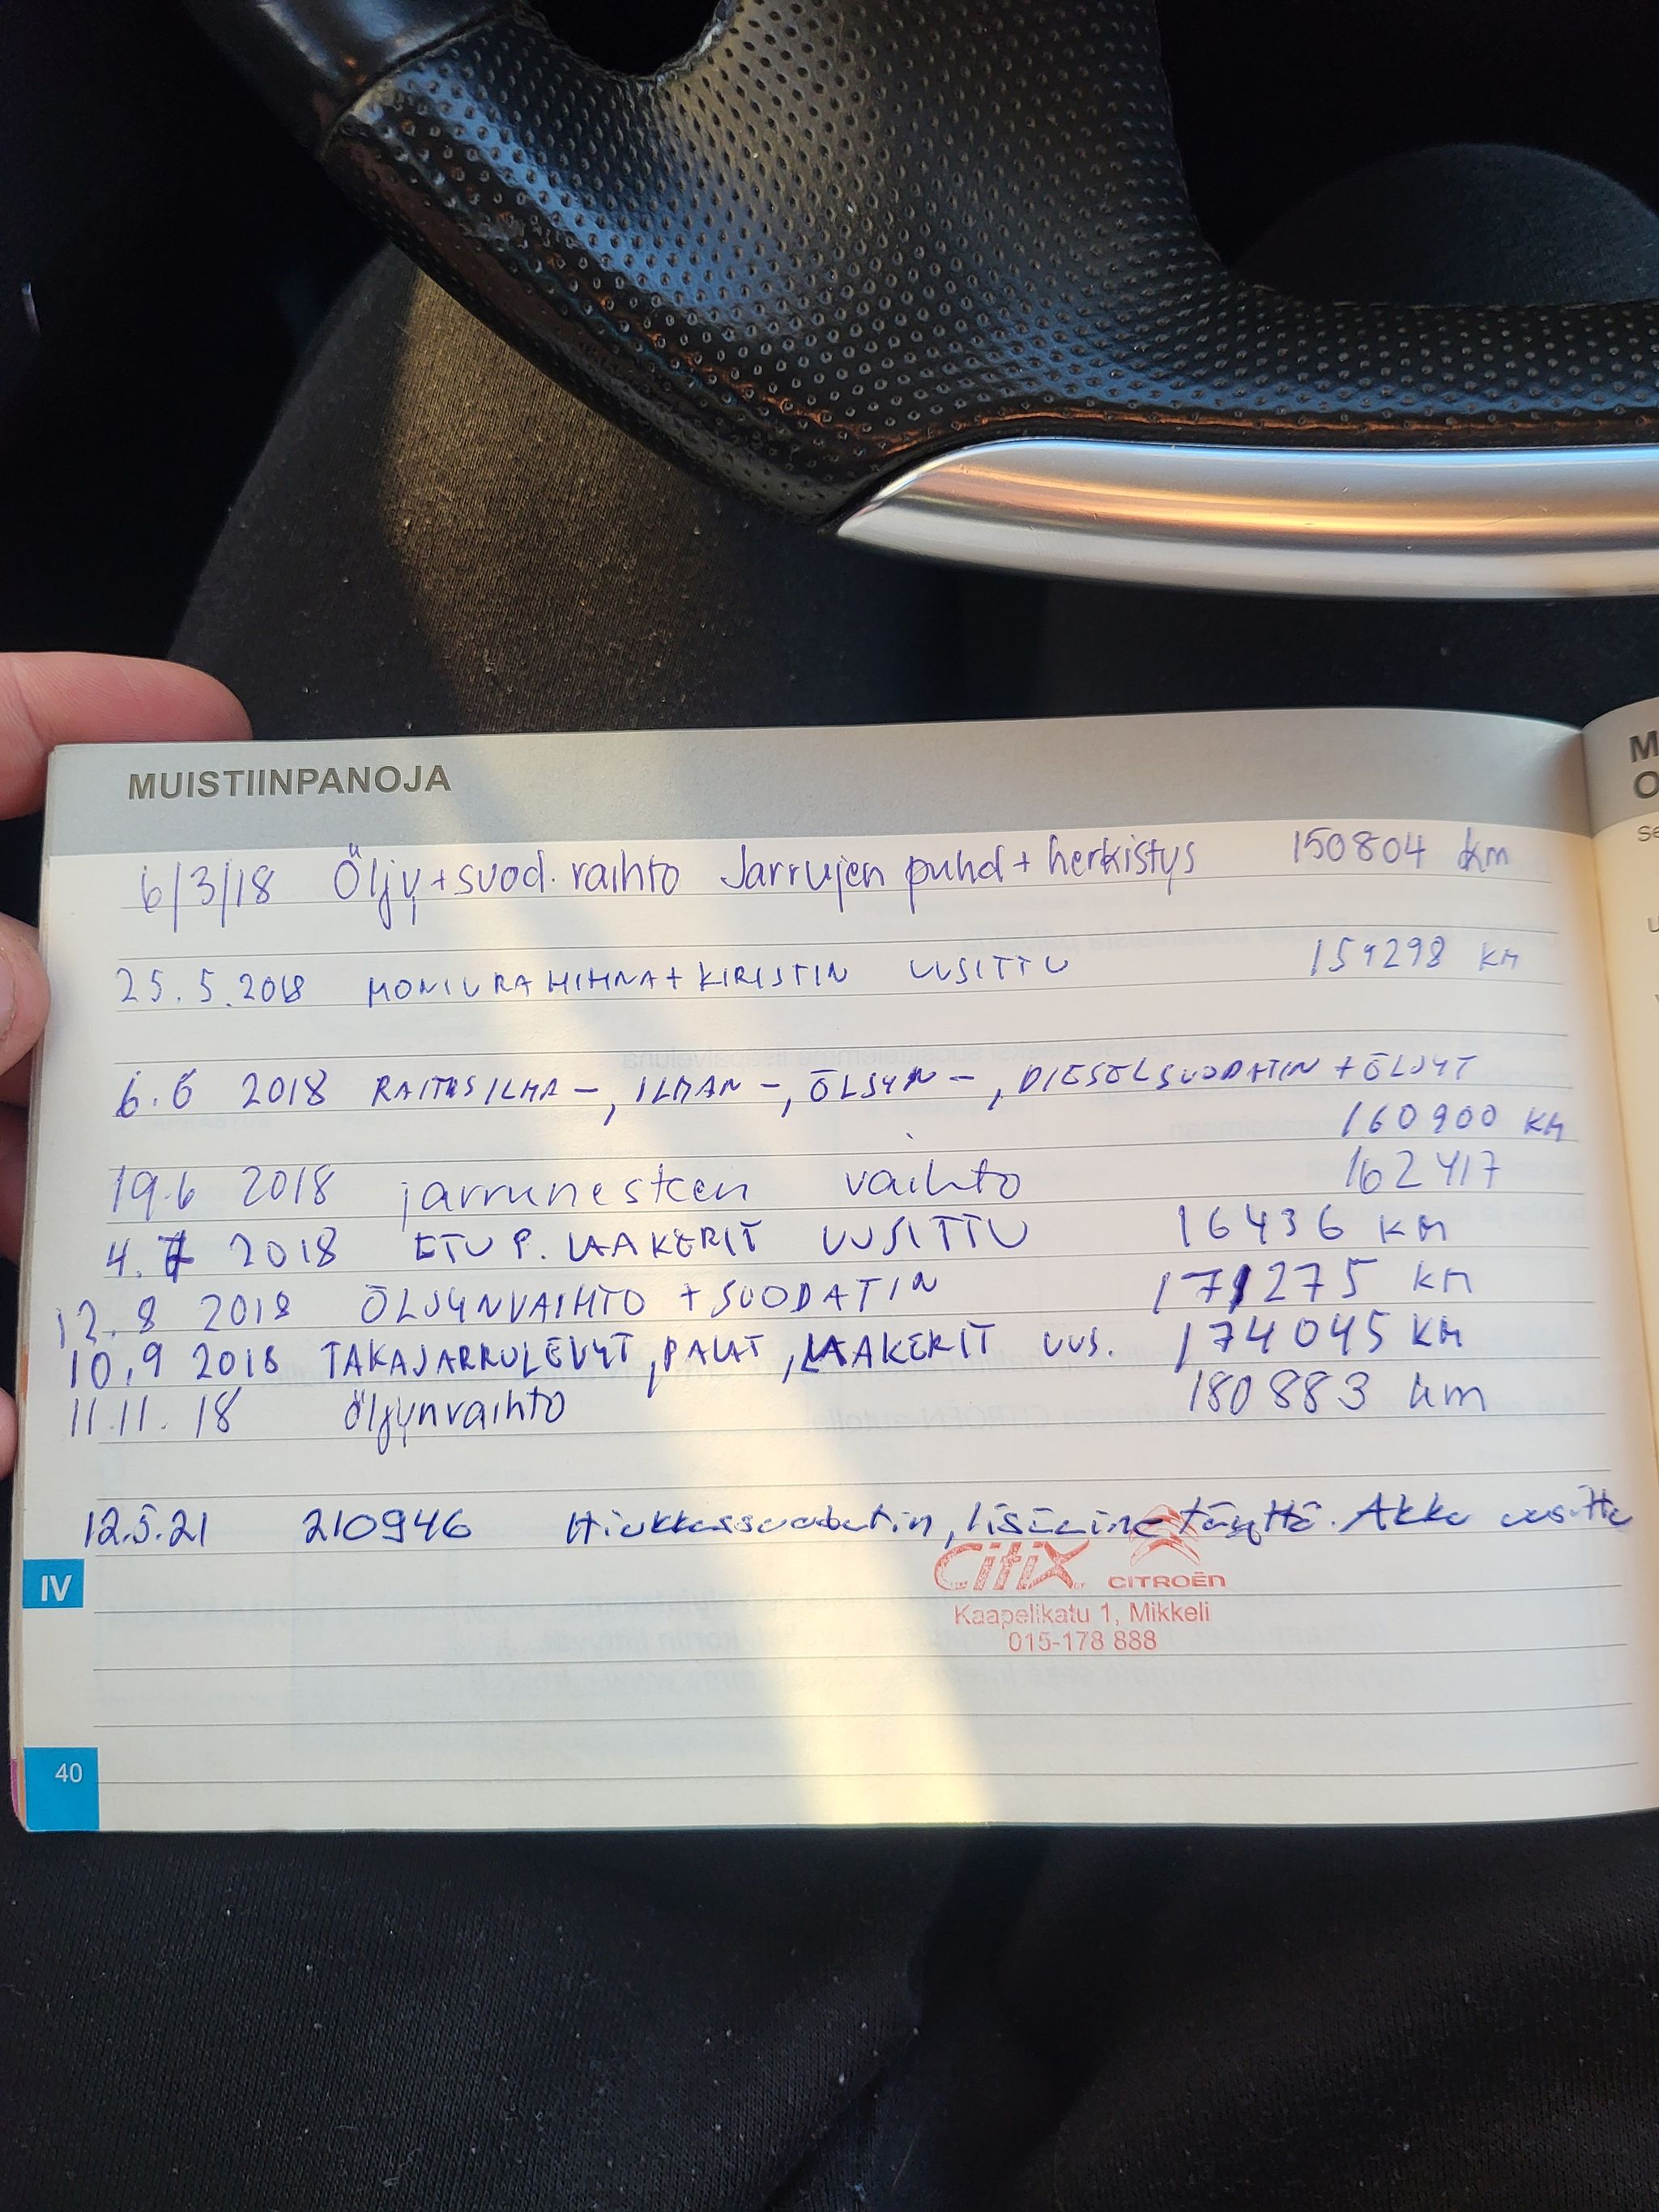 MUISTIINPANOJA
6/3/18 Öljy+suod. vaihto Jarrujen puhd+herkistys 150804 km
25.5.2018 MONIURAHIHNA+KIRISTIN UUSITTU 159298 KM
6.6 2018 RAITISILMA-, ILMAN-, ÖLJYN-, DIESELSUODATIN + ÖLJYT
160900 KM
19.6 2018 jarrunesteen vaihto 162417
4.7 2018 ETU P. LAAKERIT UUSITTU 16436 KM
12.8 2018 ÖLJYNVAIHTO + SUODATIN 171275 KM
10.9 2018 TAKAJARRULEVYT, PALAT, LAAKERIT UUS. 174045 KM
11.11. 18 öljynvaihto 180883 km
12.5.21 210946 Hiukkassuodatin, lisäaine täyttö. Akku uusittu
Citix CITROËN
Kaapelikatu 1, Mikkeli
015-178 888
IV
40
M
O
Se